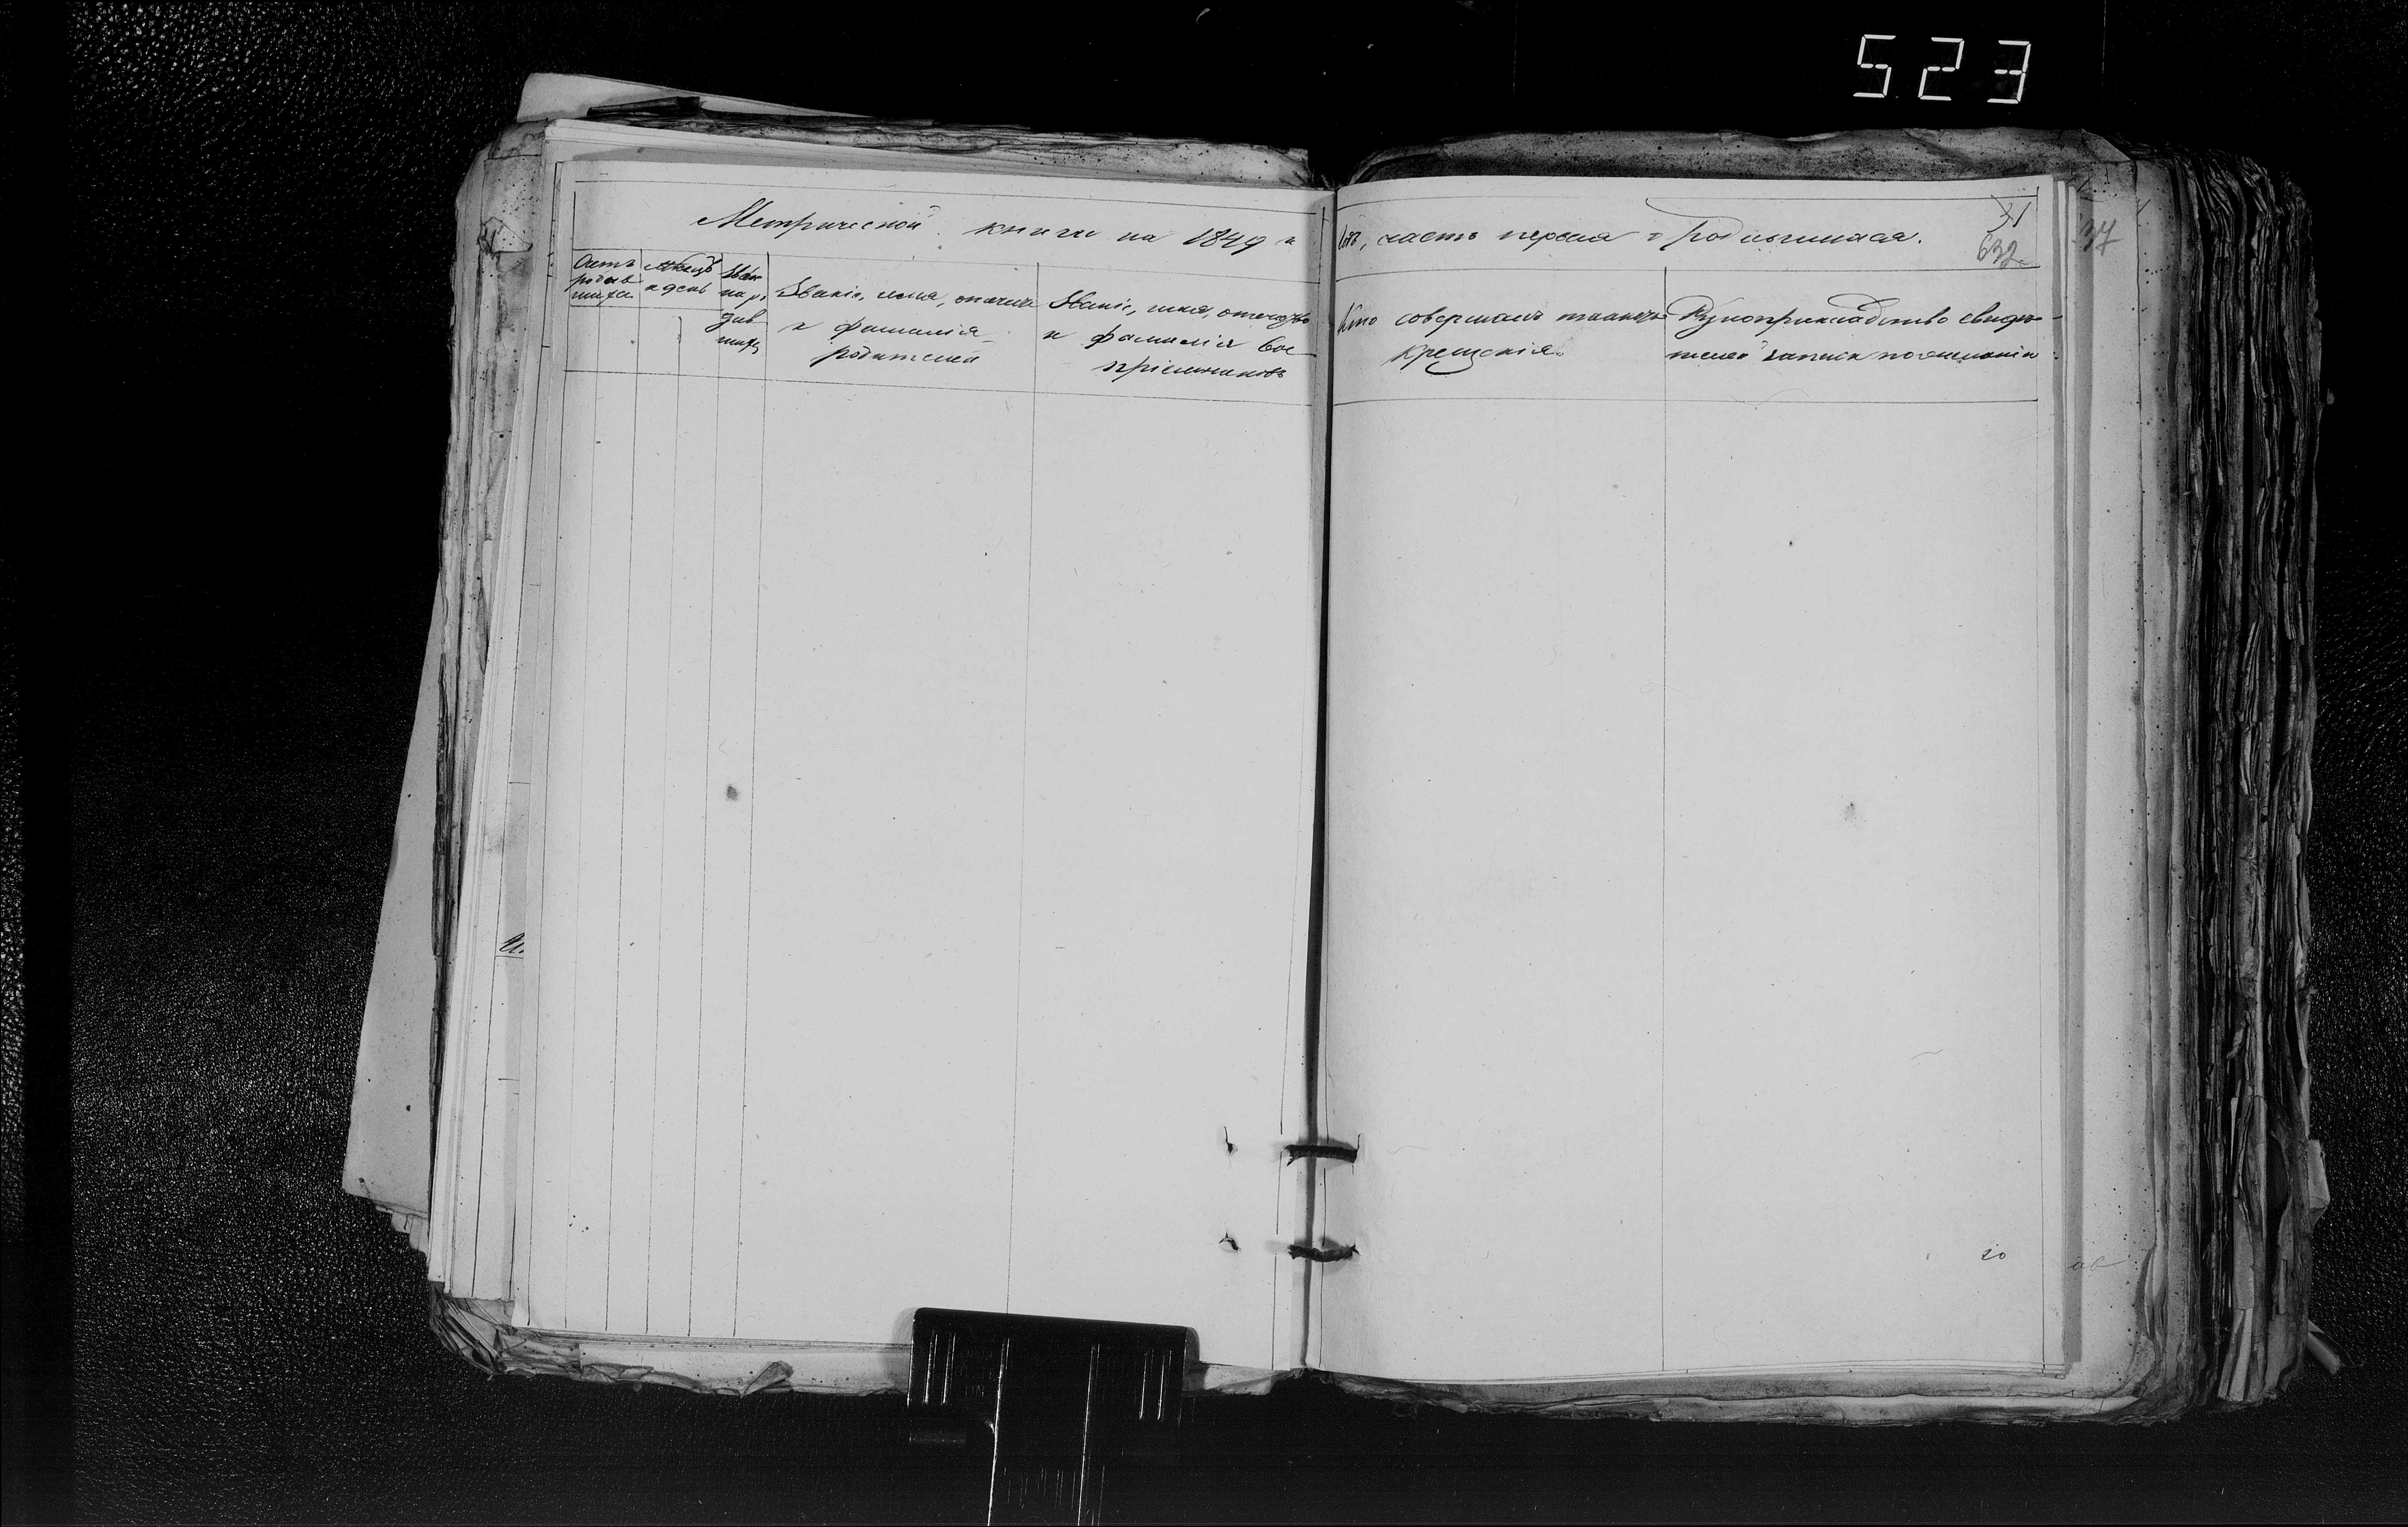 523
Метрической книги на 1849 й
годъ, часть первая о родившихся.
31
632
37
Счетъ
родив
шихся
Мѣсяцъ
и день
Имена ро
див
шихъ
Званіе, имя, отчество
и фамилія
родителей
Званіе, имя, отчество
и фамилія вос
пріемниковъ
Кто совершалъ таинство
крещенія
Рукоприкладство свидѣ
телей записи по желанію
20